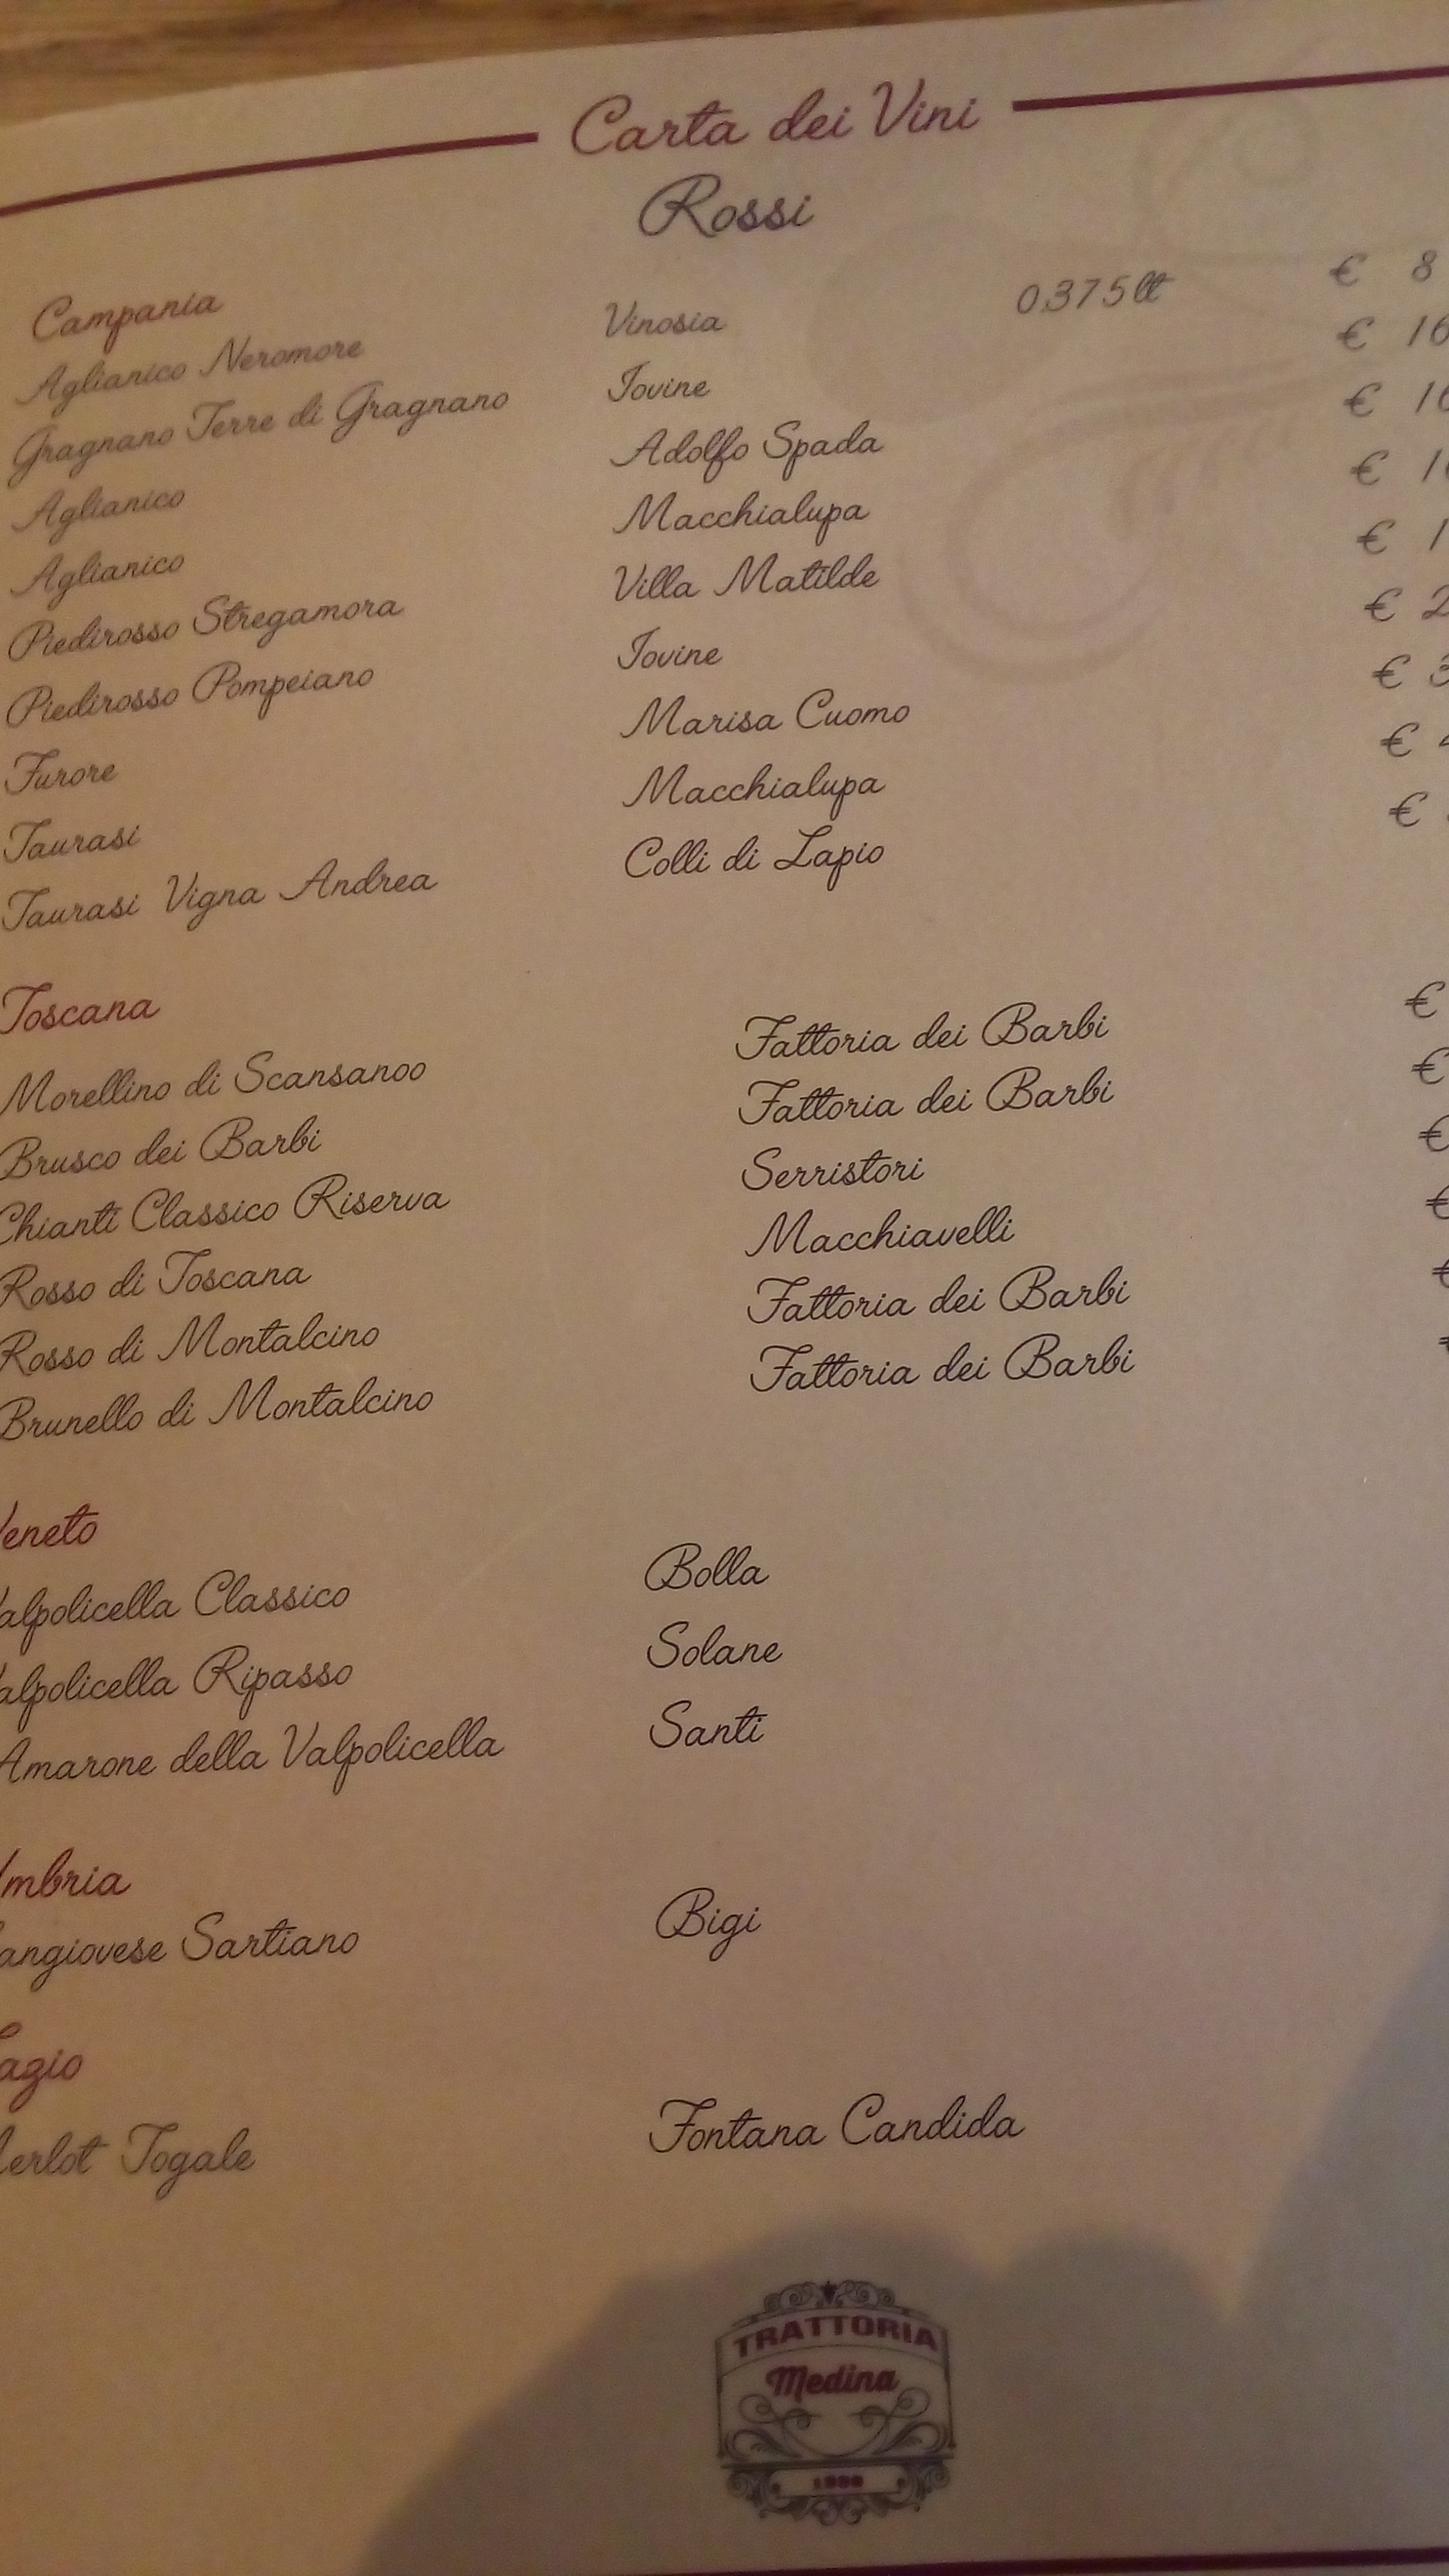 Carta dei Vini
Rossi
Campania
Aglianico Neromore Vinosia 0.375lt € 8
Gragnano Terre di Gragnano Iovine € 16
Aglianico Adolfo Spada €
Aglianico Macchialupa €
Piedirosso Stregamora Villa Matilde €
Piedirosso Pompeiano Iovine €
Furore Marisa Cuomo €
Taurasi Macchialupa €
Taurasi Vigna Andrea Colli di Lapio €
Toscana
Morellino di Scansanoo Fattoria dei Barbi €
Brusco dei Barbi Fattoria dei Barbi €
Chianti Classico Riserva Serristori €
Rosso di Toscana Macchiavelli €
Rosso di Montalcino Fattoria dei Barbi €
Brunello di Montalcino Fattoria dei Barbi
Veneto
Valpolicella Classico Bolla
Valpolicella Ripasso Solane
Amarone della Valpolicella Santi
Umbria
Sangiovese Sartiano Bigi
agio
Merlot Togale Fontana Candida
TRATTORIA
Medina